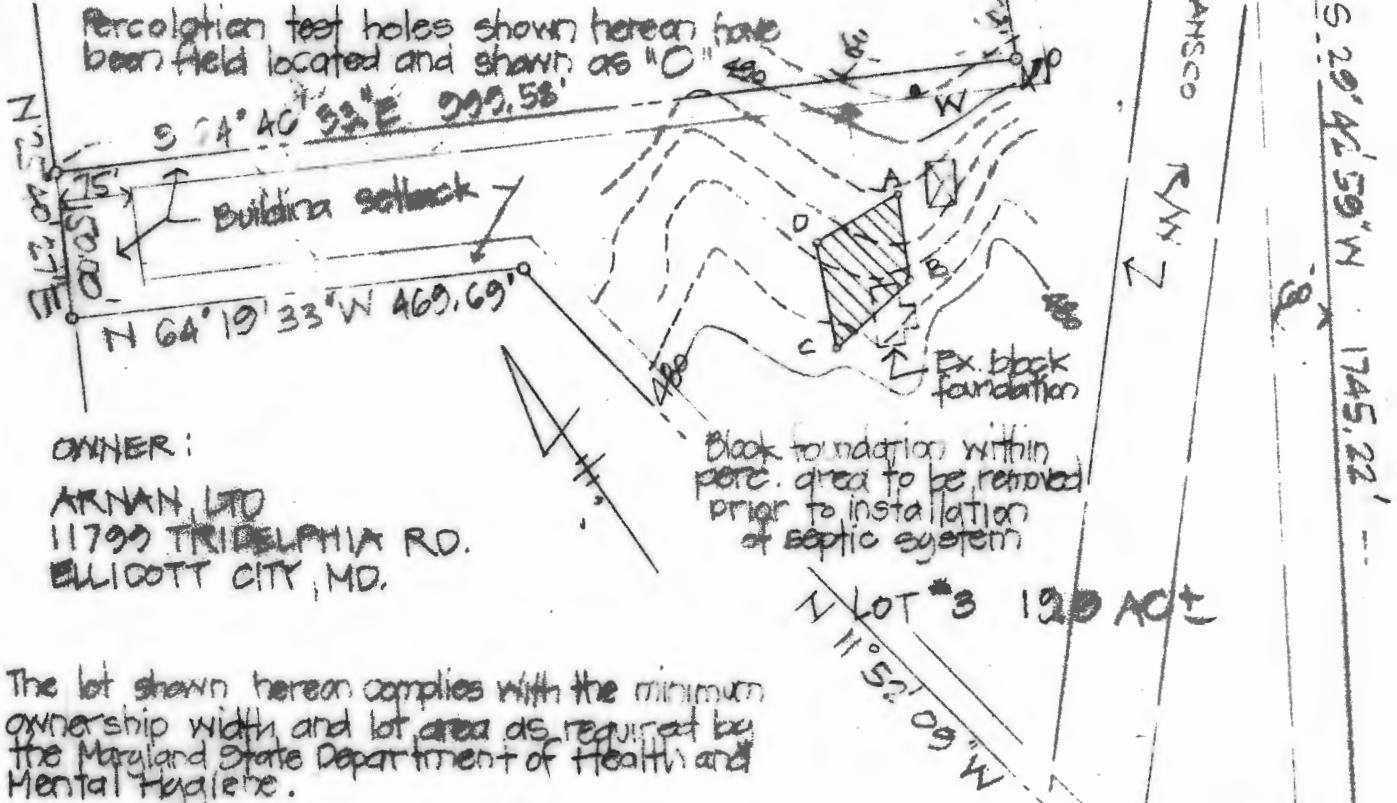 Percolation test holes shown hereon have
been field located and shown as "O"
S 64° 46' 33" E 999.58'
N 25° 40' 27" E
150.00'
75'
Building setback
N 64° 19' 33" W 469.69'
480
480
480
W
A
B
C
D
Ex. block
foundation
Block foundation within
perc. area to be removed
prior to installation
of septic system
OWNER:
ARNAN, LTD
11799 TRIDELPHIA RD.
ELLICOTT CITY, MD.
LOT #3
AC ±
N 11° 52' 09" W
R/W
S 29° 42' 59" W 1745.22'
The lot shown hereon complies with the minimum
ownership width and lot area as required by
the Maryland State Department of Health and
Mental Hygiene.